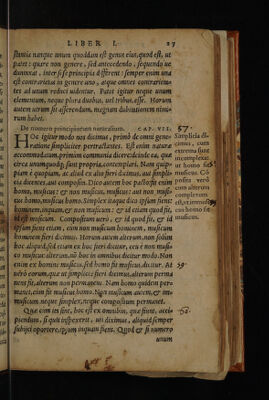 LIBER I. 27
stantia naque unum quoddam est genus eius, quod est, ut
patet: quare non genere, sed antecedendo, sequendo ue
dunt axat, inter se se principia different: semper enim una
est contrarietas in genere uno, atque omnes contrarieta-
tes ad unum reduci uidentur. Patet igitur neque unum
elementum, neque plura duobus, uel tribus, esse. Horum
autem utrum sit asserendum, magnam dubitationem nimi-
rum habet.
De numero principiorum naturalium. CAP. VII.
Hoc igitur modo nos dicimus, primò de omni gene-
ratione simpliciter pertractantes. Est enim natura
accommodatum, primum communia dicere: deinde ea, quæ
circa unumquodque, sunt propria, contemplari. Nam quip-
piam è quopiam, ac aliud ex alio fieri dicimus, aut simpli-
cia dicentes, aut composita. Dico autem hoc pacto: fit enim
homo, musicus: & non musicus, musicus: aut non musi-
cus homo, musicus homo. Simplex itaque dico ipsum fieri:
hominem, inquam, & non musicum: & id etiam quod fit,
id est musicum. Compositum uerò, & id quod fit, & id
ipsum fieri etiam, cum non musicum hominem, musicum
hominem fieri dicimus. Horum autem alterum, non solum
hoc aliquid, sed etiam ex hoc fieri dicitur, ceu è non musi-
co musicus: alterum, non hoc in omnibus dicitur modo. Non
enim ex homine musicus, sed homo fit musicus, dicitur. At
uerò eorum, quæ ut simplicia fieri dicimus, alterum perma
nens fit, alterum non permanens. Nam homo quidem per-
manet, cum fit musicus, homo. Non musicum autem, & im-
musicum neque simplex, neque compositum permanet.
Quæ cum ita sint, hoc est ex omnibus, quæ fiunt, acci-
piendum, si quis inspexerit, uti dicimus, aliquid semper
subijci oportere, ipsum inquam fiens. Quod & si numero
unum
57.
Simplicia di
cimus, cum
extrema sunt
incomplexa:
ut homo fit
musicus. Cõ
posita verò
cum alterum
complexum
est, ut immusi
cus homo fit
musicus.
59.